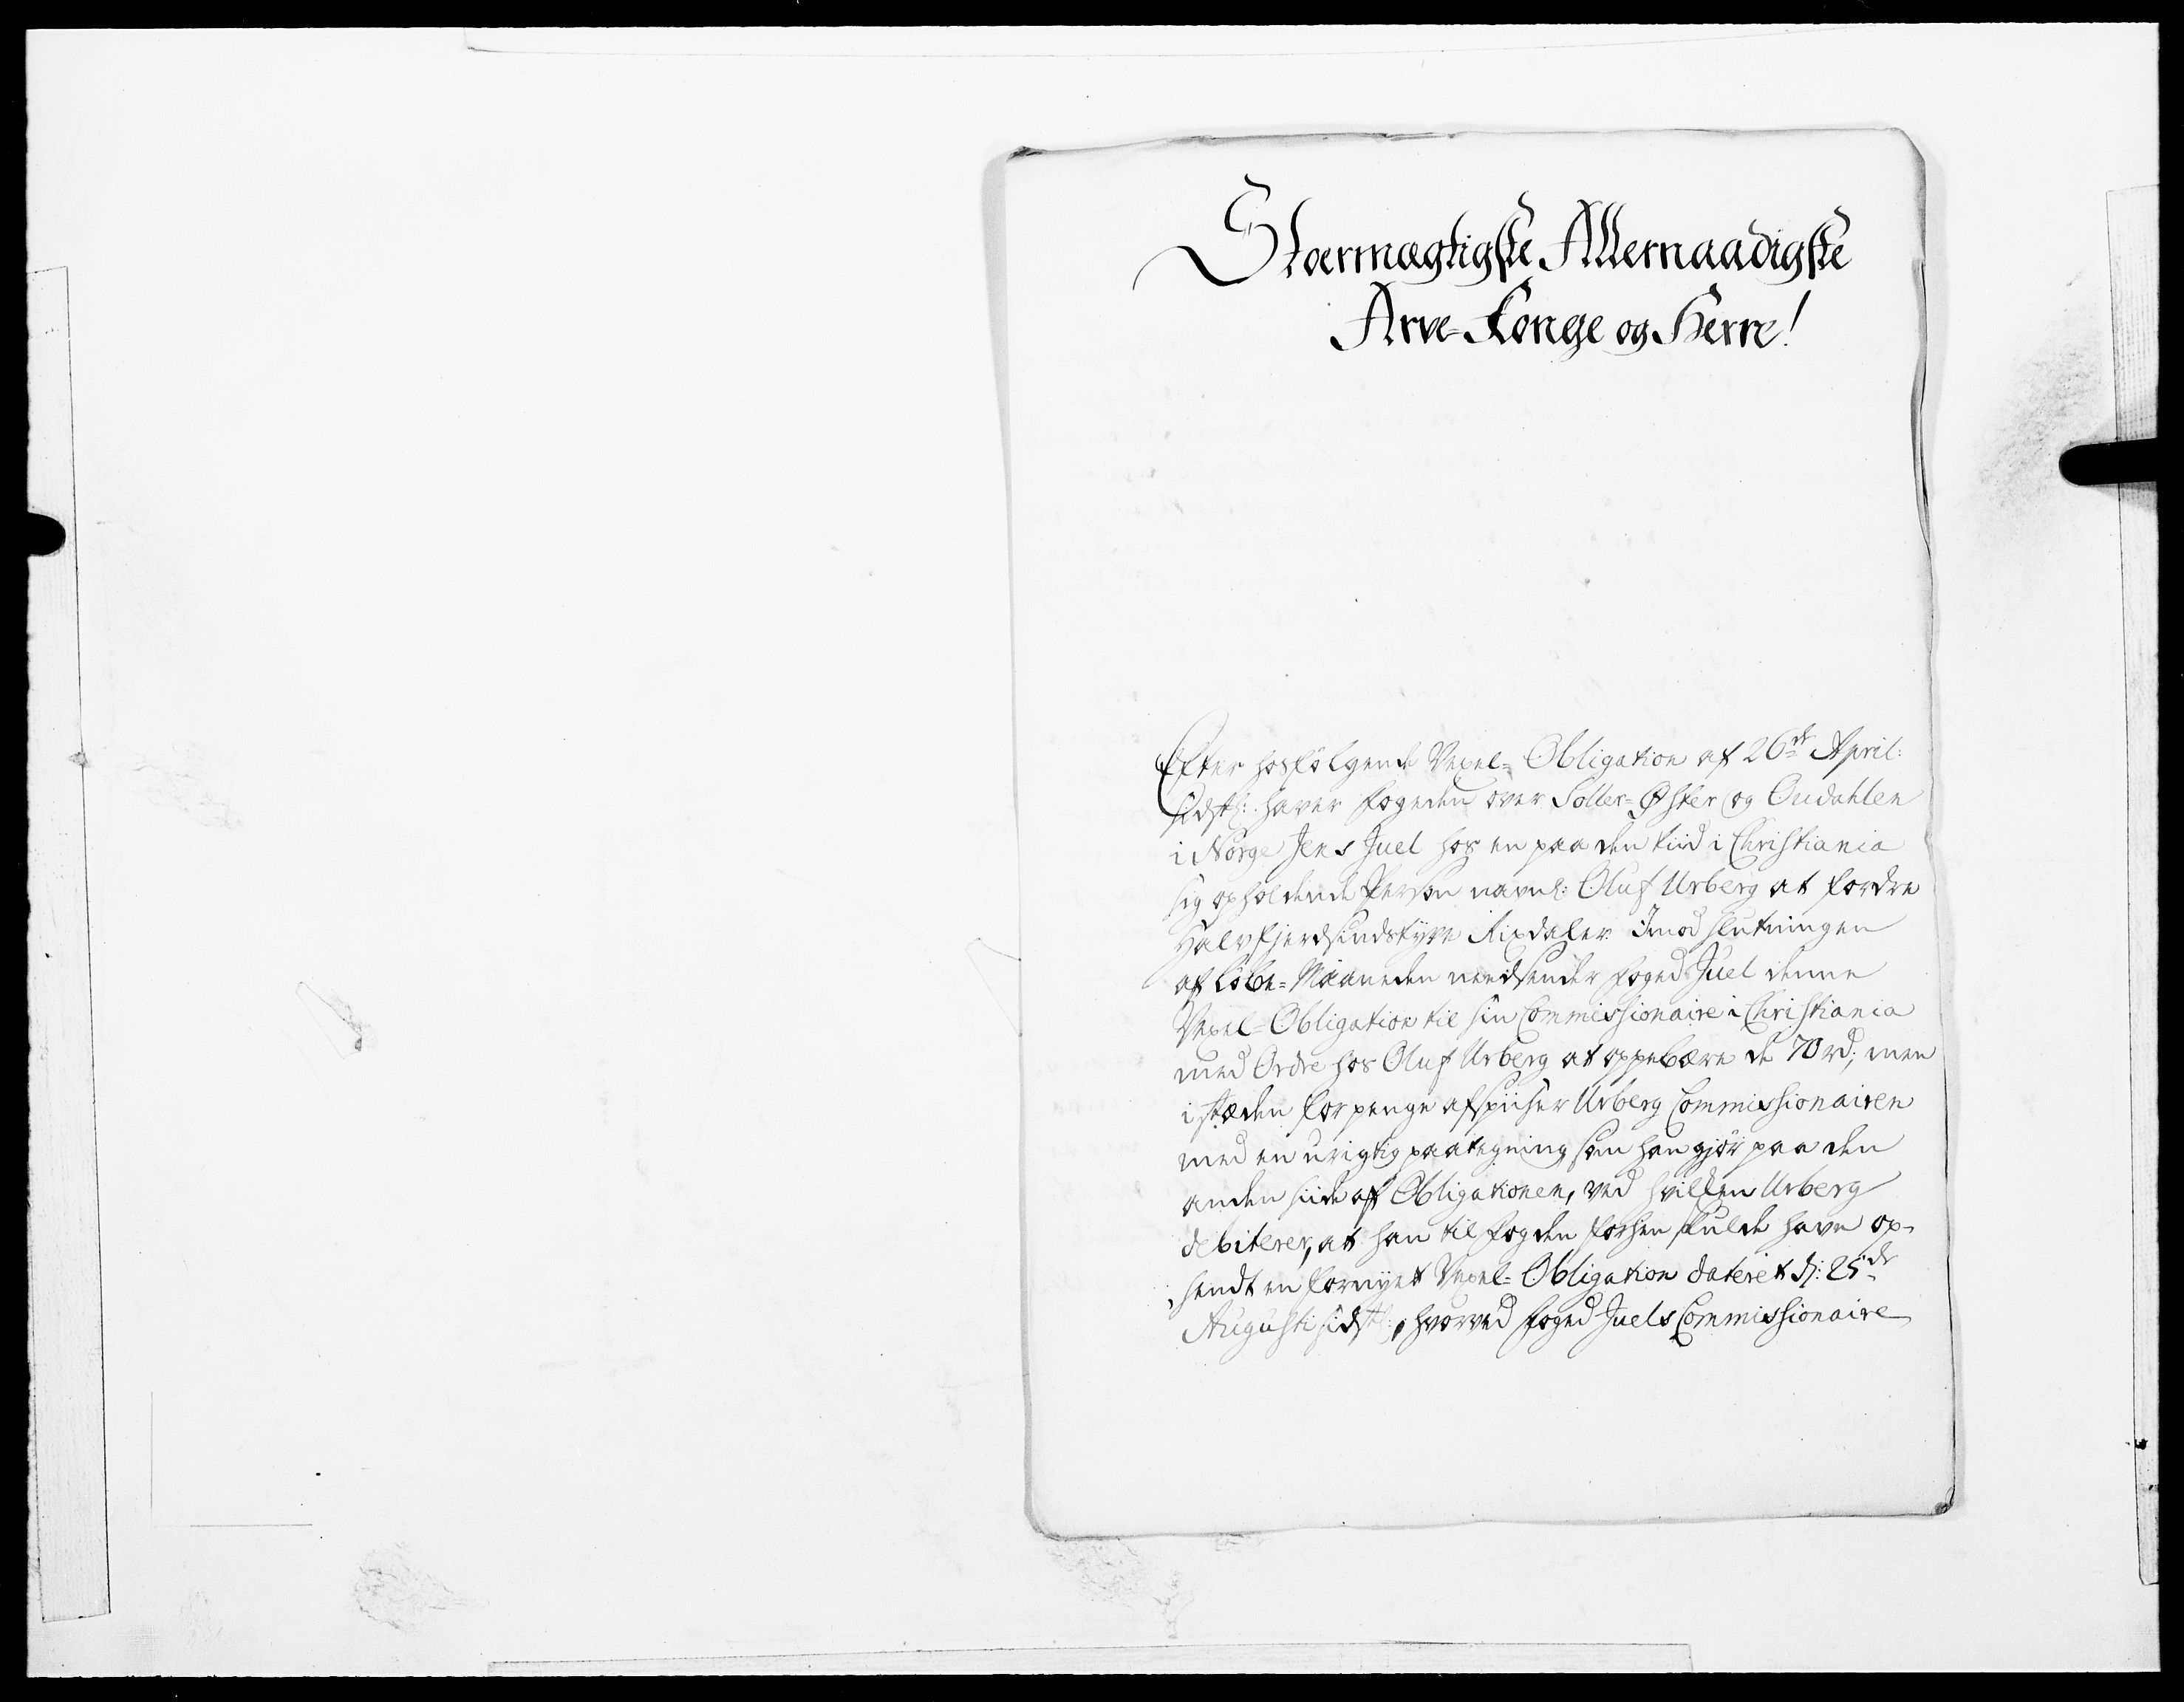 Stoermægtigste Allernaadigste
Arve-Konge og Herre!
Efter hosfølgende Vexel-Obligation af 26de April:
sidstl: haver Fogeden over Soller-Øster og Oudahlen
i Norge Jens Juel hos en paa den tiid i Christiania
sig opholdende Person navnl: Oluf Urberg at fordre
Halvfjerdsindstyve Rixdaler. Imod slutningen
af Løbe-Maaneden neds​ender foged Juel denne
Vexel-Obligation til sin Commissionaire i Christiania
med Ordre hos Oluf Urberg at oppebære de 70 rd; men
i stæden for penge afspiiser Urberg Commissionairen
med en urigtig paategning som han gjør paa den
anden siide af Obligationen, ved hvilken Urberg
debiterer, at han til fogden forhen skulde have op-
sendt en fornyet Vexel-Obligation dateret d: 25de
Augusti sidstl:, hvorved foged Juels Commissionaire